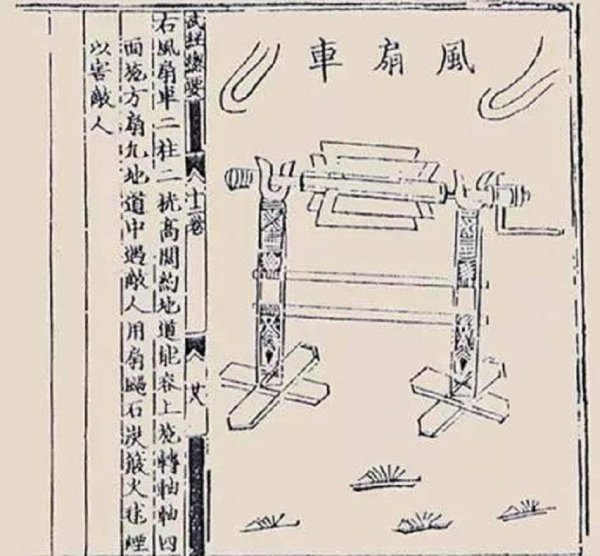 風扇車
武經總要
十二卷
右風扇車二柱二桄高闊約地道能容上施轉軸軸四
面施方扇凡地道中遇敵人用扇颺石炭簸火毬煙
以害敵人